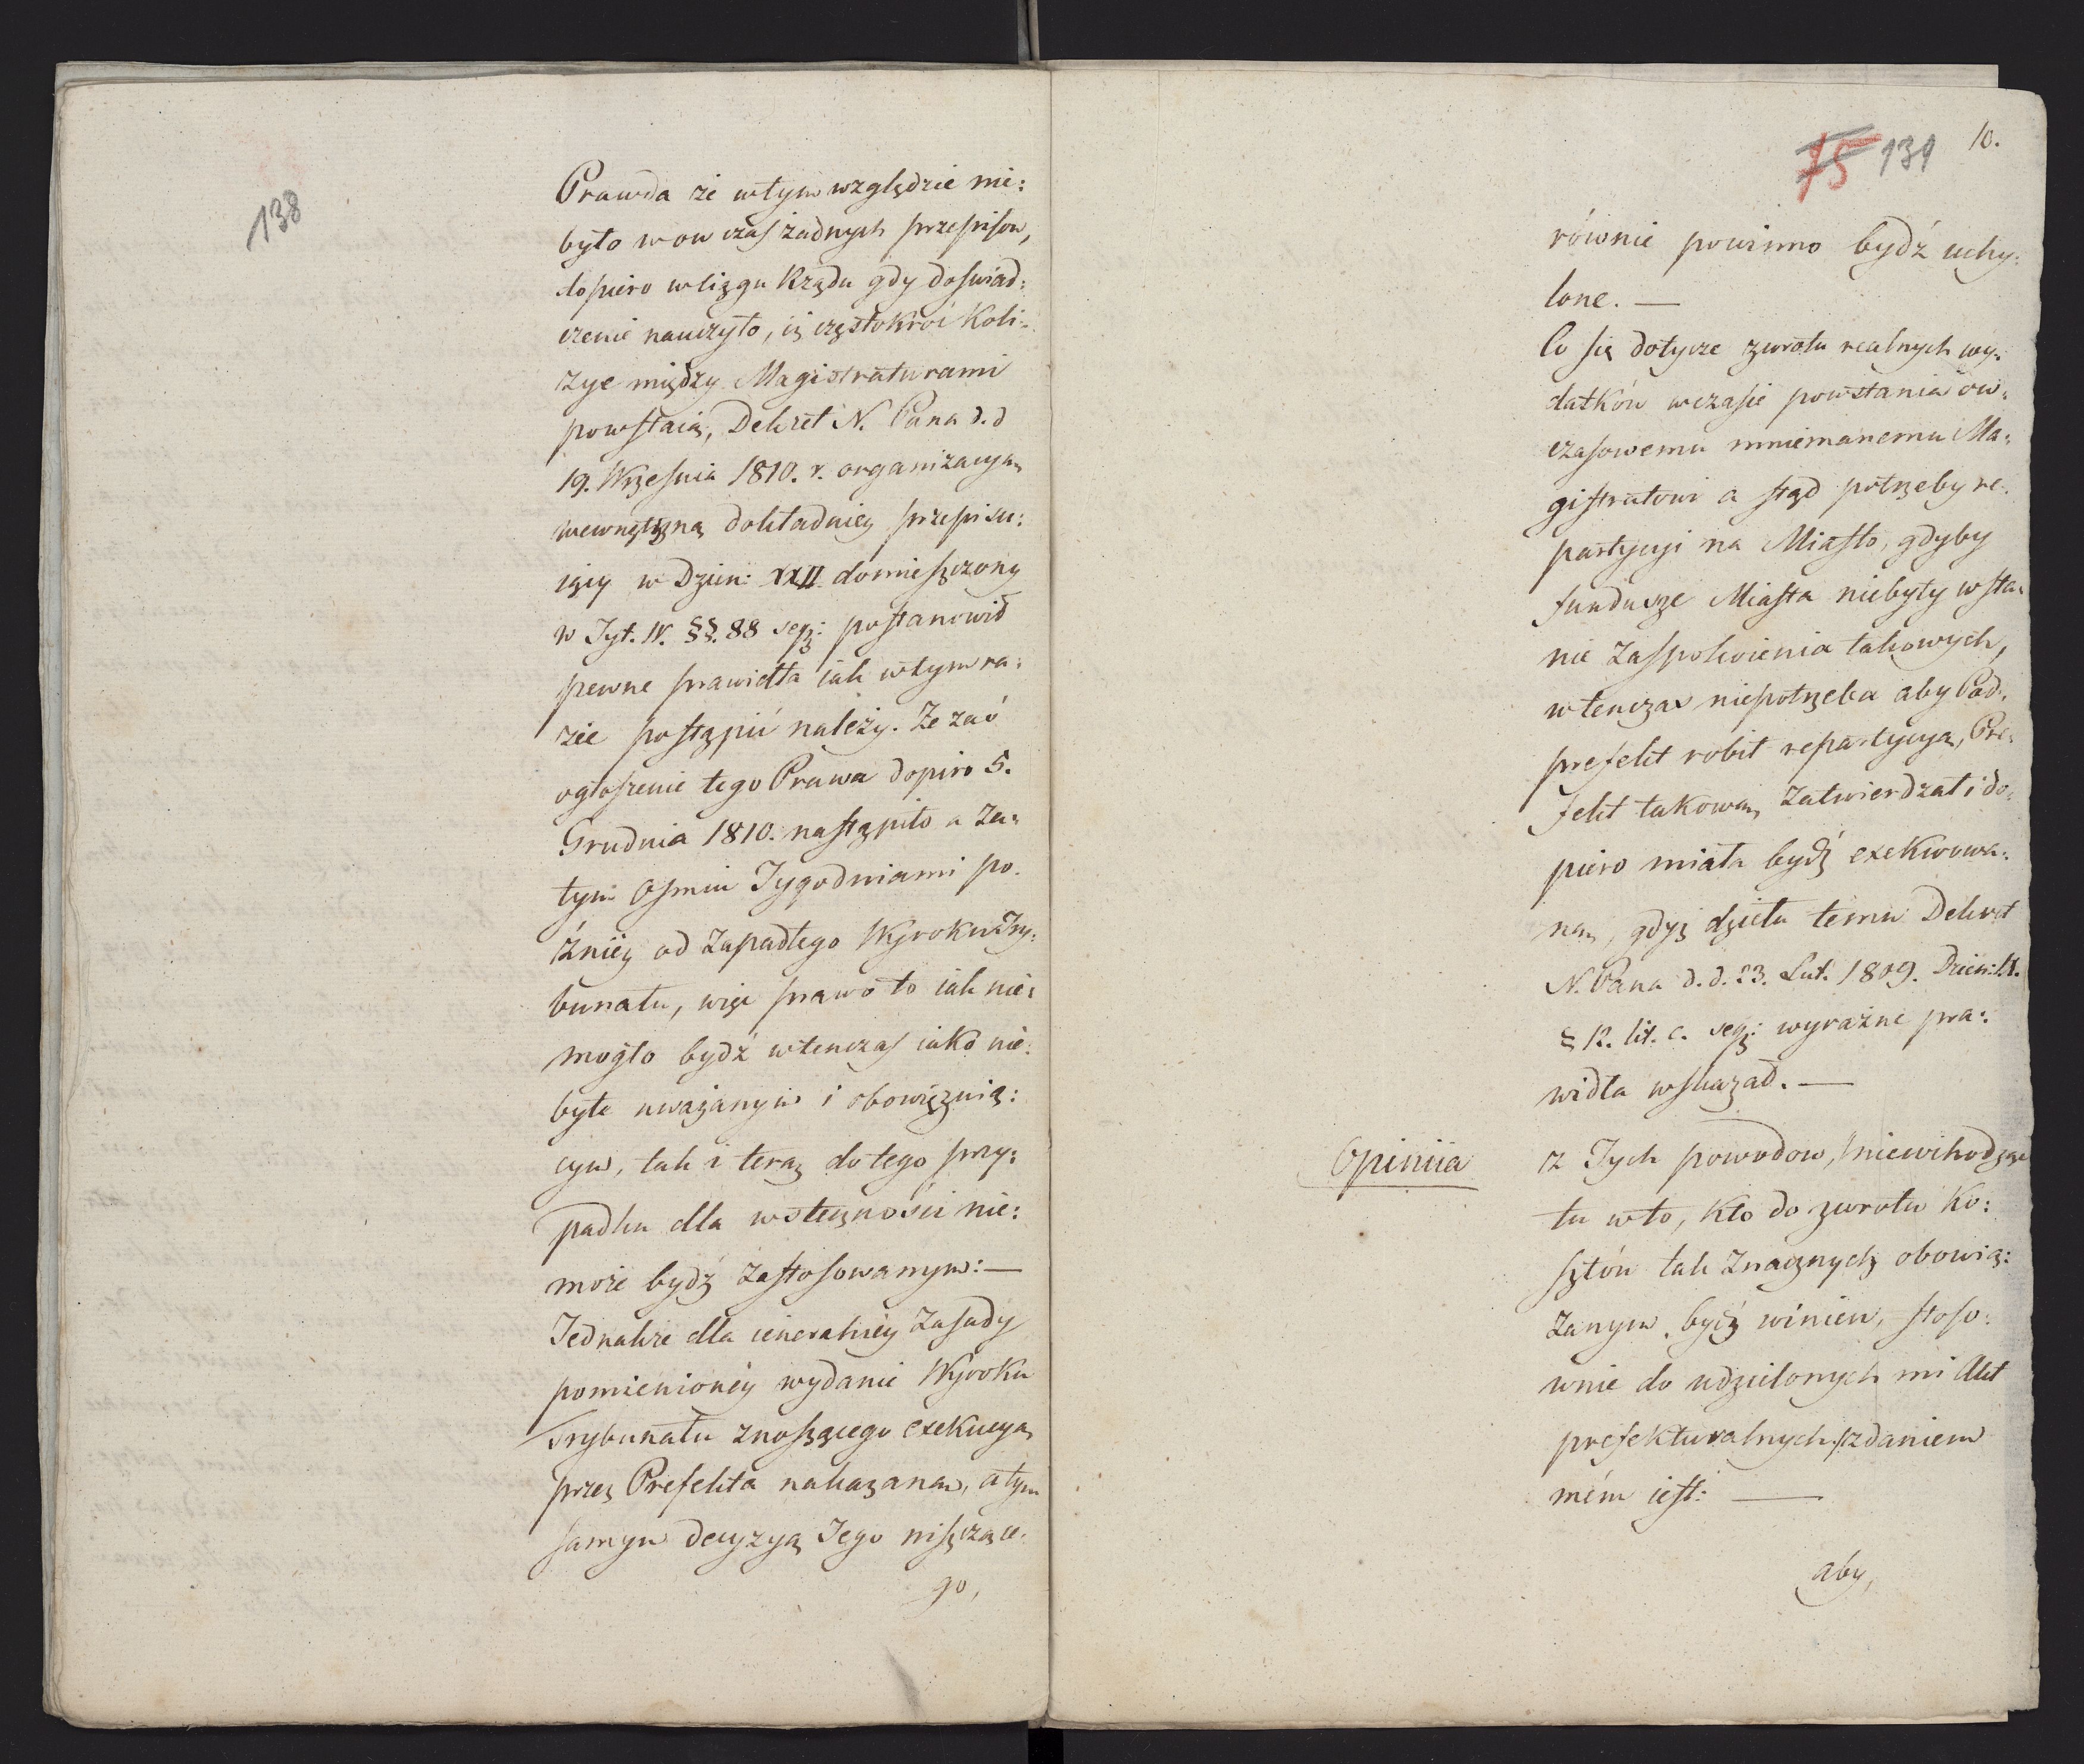 138
Prawda że w tym względzie nie:
było wow czas żadnych przepisow,
dopiero w ciągu Rządu gdy doswiad:
czenie nauczyło, iż częstokroć Koli:
zye między Magistraturami
powstaią, Dekret N. Pana d. d
19. Września 1810. r. organizacyą
wewnętrzną dokładniey przepisu:
iący w Dzien: XXII domieszczony
w Tyt. IV. §§. 88 seq: postanowił
pewne prawidła iak w tym ra:
zie postąpić należy. Ze zaś
ogłoszenie tego Prawa dopiro 5.
Grudnia 1810. nastąpiło a za:
tym Osmiu Tygodniami po:
źniey od zapadłego Wyroku Try:
bunału, więc prawo to iak nie:
mogło bydź wtenczas iako nie:
byłe uważanym i obowiązuią:
cym, tak i teraz do tego przy:
padku dla wsteczności nie:
może bydź zastosowanym: —
Jednakże dla ieneralney Zasady
pomienioney wydanie Wyroku
Trybunału znoszącego exekucyą
przez Prefekta nakazaną, a tym
samym decyzyą Jego niszczące:
go,
75 139 10.
równie powinno bydź uchy:
lone. —
Co się dotycze zwrotu realnych wy:
datków w czasie powstania ów:
czasowemu mniemanemu Ma:
gistratowi a stąd potrzeby re:
partycyi na Miasto, gdyby
fundusze Miasta niebyły w sta:
nie Zaspokoienia takowych,
wtenczas niepotrzeba aby Pod:
prefekt robił repartycyą, Pre:
fekt takową Zatwierdzał i do:
piero miała bydź exekwowa:
ną, gdyż dziełu temu Dekret
N. Pana d. d. 23. Lut. 1809. Dzien: IX.
§ 12. lit. c. seq: wyraźne pra:
widła wskazał. —
Opiniia
z Tych powodow, /: niewchodząc
tu w to, Kto do zwrotu Ko:
sztów tak Znacznych obowią:
zanym bydź winien, stoso:
wnie do udzielonych mi Akt
prefekturalnych :/ zdaniem
mém iest: —
aby,